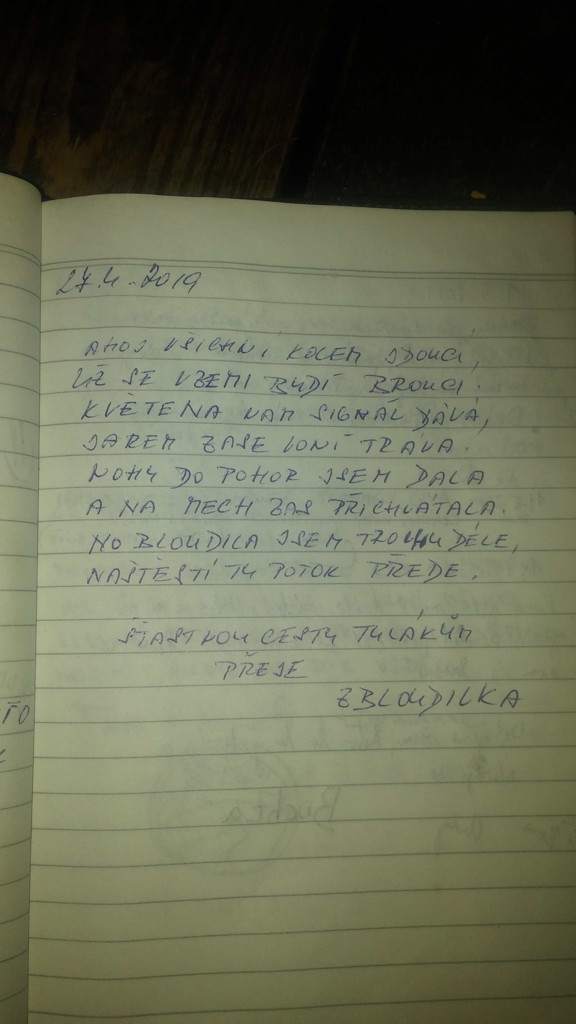 27.4.2019
AHOJ VŠICHNI, KOLEM JDOUCÍ,
UŽ SE V ZEMI BUDÍ BROUCI.
KVĚTENA NAM SIGNÁL DÁVÁ,
JAREM ZASE VONÍ TRÁVA.
NOHY DO POHOR JSEM DALA
A NA MECH ZAS PŘICHVÁTALA.
NO BLOUDILA JSEM TROCHU DÉLE,
NAŠTĚSTÍ TU POTOK PŘEDE.
ŠŤASTNOU CESTU TULÁKŮM
PŘEJE
ZBLOUDILKA
Buchta